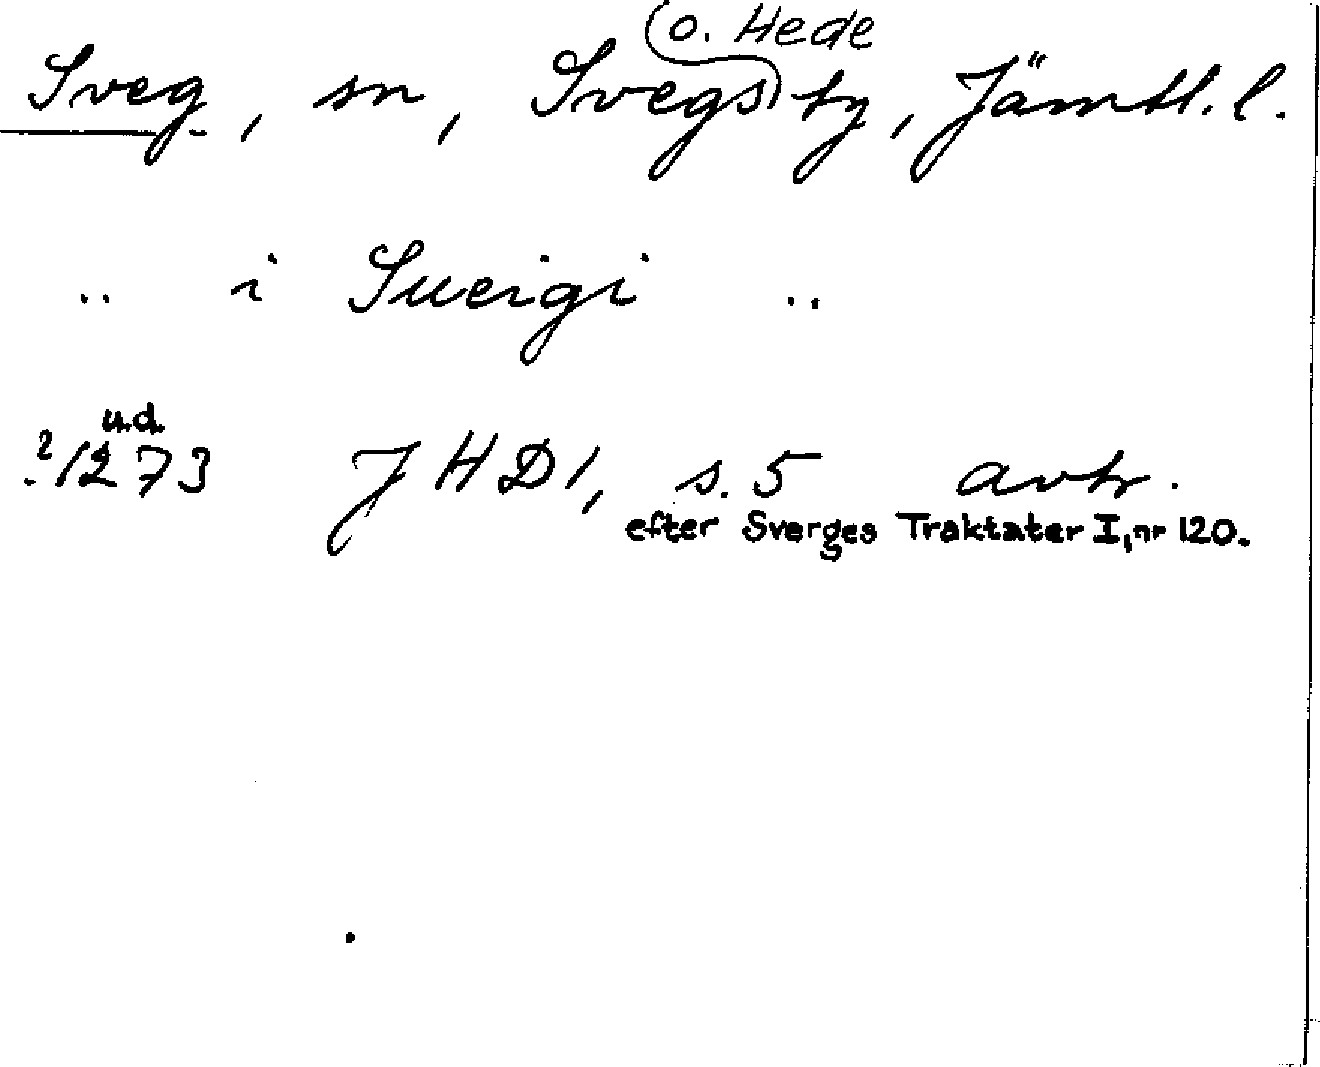 o. Hede
Sveg, sn, Svegs tg, Jämtl. l.
.. i Sueigi ..
u.d.
?1273 JHD 1, s. 5 avtr.
efter Sverges Traktater I, nr 120.